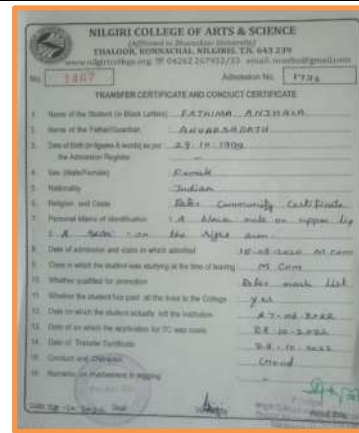 NILGIRI COLLEGE OF ARTS & SCIENCE
(Affiliated to Bharathiar University)
THALOOR, KONNACHAL, NILGIRIS, T.N. 643 239
www.nilgiricollege.org ☎ 04262 267932/33 email:
No. 1467 Admission No. 1796
TRANSFER CERTIFICATE AND CONDUCT CERTIFICATE
1. Name of the Student (in Block Letters) FATHIMA ANJHALA
2. Name of the Father/Guardian ANVARSHDATH
3. Date of birth (in figures & words) as per 29.10.1999
the Admission Register –
4. Sex (Male/Female) Female
5. Nationality Indian
6. Religion and Caste Refer Community Certificate
7. Personal Marks of identification 1. A black mole on upper lip
2. A scar on the right arm.
8. Date of admission and class in which admitted M.Com
9. Class in which the student was studying at the time of leaving M.Com
10. Whether qualified for promotion Refer mark list
11. Whether the student has paid all the fees to the College Yes
12. Date on which the student actually left the institution 27-06-2022
13. Date of on which the application for TC was made 28.10.2022
14. Date of Transfer Certificate 28.10.2022
15. Conduct and Character Good
16. Remarks on involvement in ragging –
Date 28.10.2022 Seal